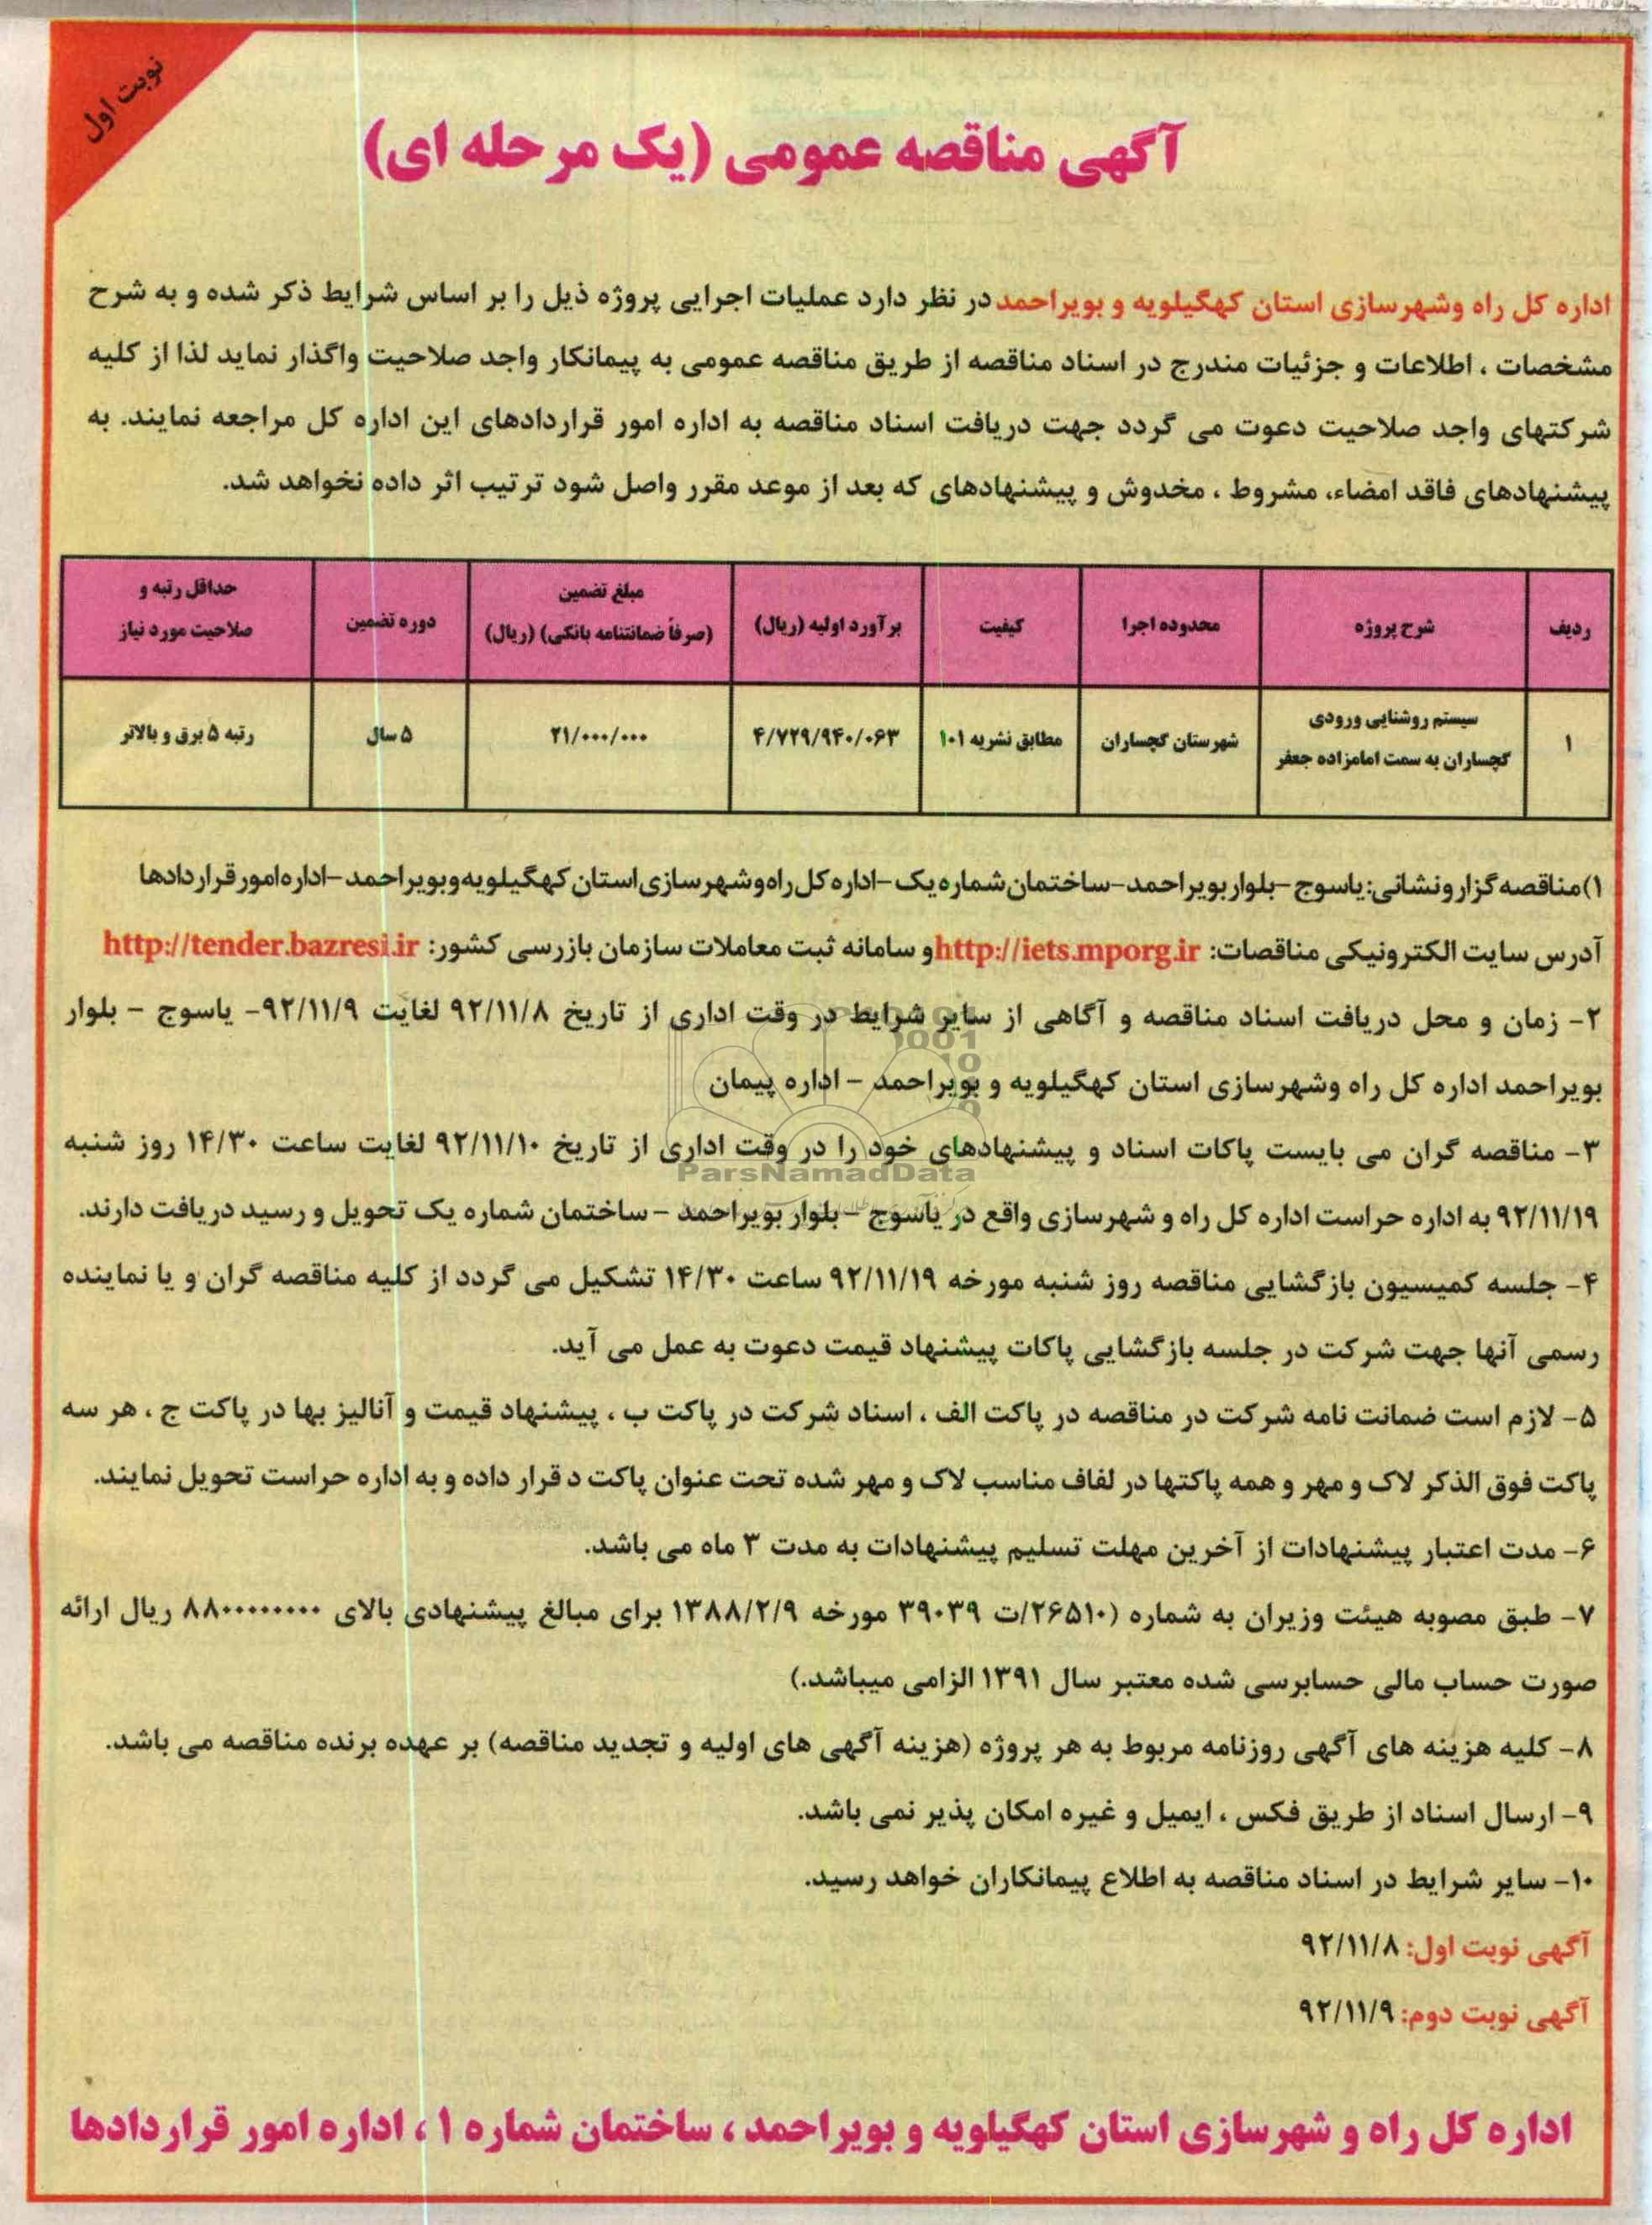 نوبت اول
آگهی مناقصه عمومی (یک مرحله ای)
اداره کل راه وشهرسازی استان کهگیلویه و بویراحمد در نظر دارد عملیات اجرایی پروژه ذیل را بر اساس شرایط ذکر شده و به شرح
مشخصات ، اطلاعات و جزئیات مندرج در اسناد مناقصه از طریق مناقصه عمومی به پیمانکار واجد صلاحیت واگذار نماید لذا از کلیه
شرکتهای واجد صلاحیت دعوت می گردد جهت دریافت اسناد مناقصه به اداره امور قراردادهای این اداره کل مراجعه نمایند. به
پیشنهادهای فاقد امضاء، مشروط ، مخدوش و پیشنهادهای که بعد از موعد مقرر واصل شود ترتیب اثر داده نخواهد شد.
ردیف | شرح پروژه | محدوده اجرا | کیفیت | برآورد اولیه (ریال) | مبلغ تضمین (صرفاً ضمانتنامه بانکی) (ریال) | دوره تضمین | حداقل رتبه و صلاحیت مورد نیاز
۱ | سیستم روشنایی ورودی گچساران به سمت امامزاده جعفر | شهرستان گچساران | مطابق نشریه ۱۰۱ | ۴/۷۲۹/۹۴۰/۰۶۳ | ۲۱/۰۰۰/۰۰۰ | ۵ سال | رتبه ۵ برق و بالاتر
۱) مناقصه گزار ونشانی: یاسوج - بلوار بویراحمد - ساختمان شماره یک - اداره کل راه و شهرسازی استان کهگیلویه و بویراحمد - اداره امور قراردادها
آدرس سایت الکترونیکی مناقصات: http://iets.mporg.ir و سامانه ثبت معاملات سازمان بازرسی کشور: http://tender.bazresi.ir
۲- زمان و محل دریافت اسناد مناقصه و آگاهی از سایر شرایط در وقت اداری از تاریخ ۹۲/۱۱/۸ لغایت ۹۲/۱۱/۹- یاسوج - بلوار
بویراحمد اداره کل راه وشهرسازی استان کهگیلویه و بویراحمد - اداره پیمان
۳- مناقصه گران می بایست پاکات اسناد و پیشنهادهای خود را در وقت اداری از تاریخ ۹۲/۱۱/۱۰ لغایت ساعت ۱۴/۳۰ روز شنبه
ParsNamadData
۹۲/۱۱/۱۹ به اداره حراست اداره کل راه و شهرسازی واقع در یاسوج - بلوار بویراحمد - ساختمان شماره یک تحویل و رسید دریافت دارند.
۴- جلسه کمیسیون بازگشایی مناقصه روز شنبه مورخه ۹۲/۱۱/۱۹ ساعت ۱۴/۳۰ تشکیل می گردد از کلیه مناقصه گران و یا نماینده
رسمی آنها جهت شرکت در جلسه بازگشایی پاکات پیشنهاد قیمت دعوت به عمل می آید.
۵- لازم است ضمانت نامه شرکت در مناقصه در پاکت الف ، اسناد شرکت در پاکت ب ، پیشنهاد قیمت و آنالیز بها در پاکت ج ، هر سه
پاکت فوق الذکر لاک و مهر و همه پاکتها در لفاف مناسب لاک و مهر شده تحت عنوان پاکت د قرار داده و به اداره حراست تحویل نمایند.
۶- مدت اعتبار پیشنهادات از آخرین مهلت تسلیم پیشنهادات به مدت ۳ ماه می باشد.
۷- طبق مصوبه هیئت وزیران به شماره (۲۶۵۱۰/ت ۳۹۰۳۹ مورخه ۱۳۸۸/۲/۹ برای مبالغ پیشنهادی بالای ۸۸۰۰۰۰۰۰۰۰۰ ریال ارائه
صورت حساب مالی حسابرسی شده معتبر سال ۱۳۹۱ الزامی میباشد.)
۸- کلیه هزینه های آگهی روزنامه مربوط به هر پروژه (هزینه آگهی های اولیه و تجدید مناقصه) بر عهده برنده مناقصه می باشد.
۹- ارسال اسناد از طریق فکس ، ایمیل و غیره امکان پذیر نمی باشد.
۱۰- سایر شرایط در اسناد مناقصه به اطلاع پیمانکاران خواهد رسید.
آگهی نوبت اول: ۹۲/۱۱/۸
آگهی نوبت دوم: ۹۲/۱۱/۹
اداره کل راه و شهرسازی استان کهگیلویه و بویراحمد ، ساختمان شماره ۱ ، اداره امور قراردادها